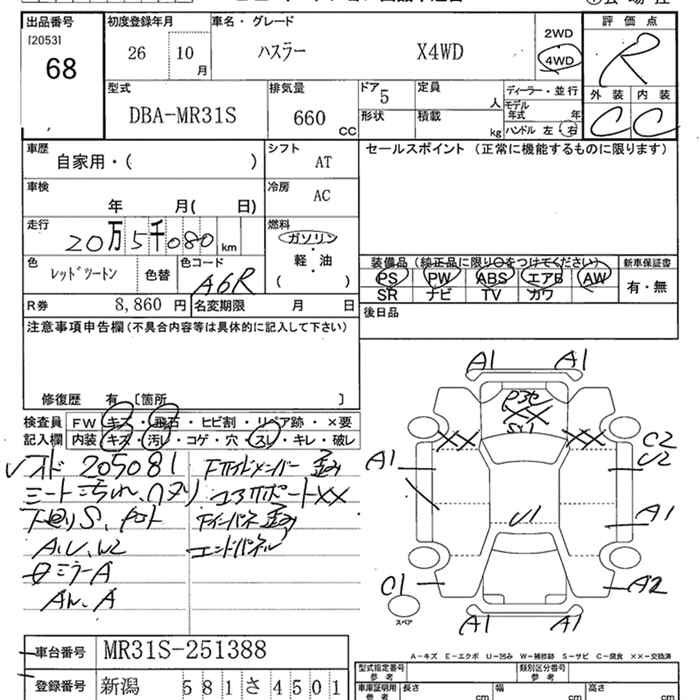 出品番号
[2053]
68
初度登録年月
26 10
月
車名・グレード
ハスラー X4WD
2WD
4WD
評価点
R
外装 内装
C C
型式
DBA-MR31S
排気量
660
CC
ドア 5
形状
定員
人
積載
kg
ディーラー・並行
モデル
年式 年
ハンドル 左・右
車歴
自家用・( )
シフト
AT
セールスポイント(正常に機能するものに限ります)
車検
年 月( 日)
冷房
AC
走行
20万5千080 km
燃料
ガソリン
軽・油
( )
色
レッドツートン
色替
色コード
A6R
装備品(純正品に限り○をつけてください)
PS PW ABS エアB AW
SR ナビ TV カワ
新車保証書
有・無
R券 8,860 円
名変期限 月 日
後日品
注意事項申告欄(不具合内容等は具体的に記入して下さい)
修復歴 有 [箇所 ]
検査員
記入欄
FW キズ・飛石・ヒビ割・リペア跡・×要
内装 キズ・汚レ・コゲ・穴・スレ・キレ・破レ
205081
シート汚れ
下廻りS
A,U,W2
ミラーA
コアサポートXX
インパネ
エンドパネル
A1 A1
XX
XX XX
C2
U2
A1
A1
U1
C1
A2
A1 A1
スペア
A-キズ E-エクボ U-凹み W-補修跡 S-サビ C-腐食 ××-交換済
車台番号 MR31S-251388
登録番号 新潟 581さ4501
型式指定番号
参考
類別区分番号
参考
車庫証明用
参考
長さ cm
幅 cm
高さ cm